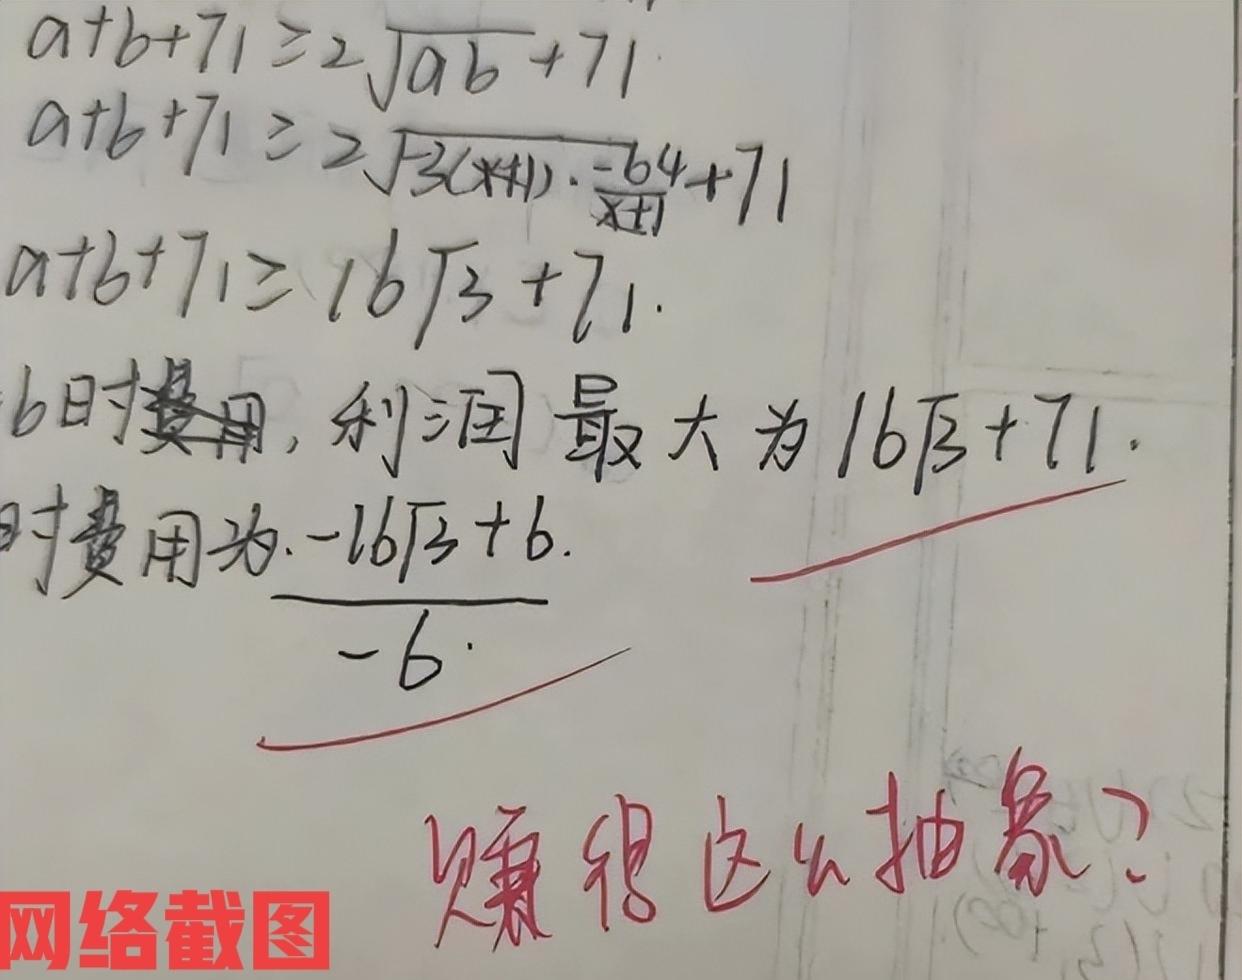 a+b+71≥2√ab+71.
a+b+71≥2√-3(x+1)·-64/x+1+71
a+b+71≥16√3+71.
b时费用,利润最大为16√3+71.
时费用为.-16√3+6.
-6.
赚得这么抽象?
网络截图